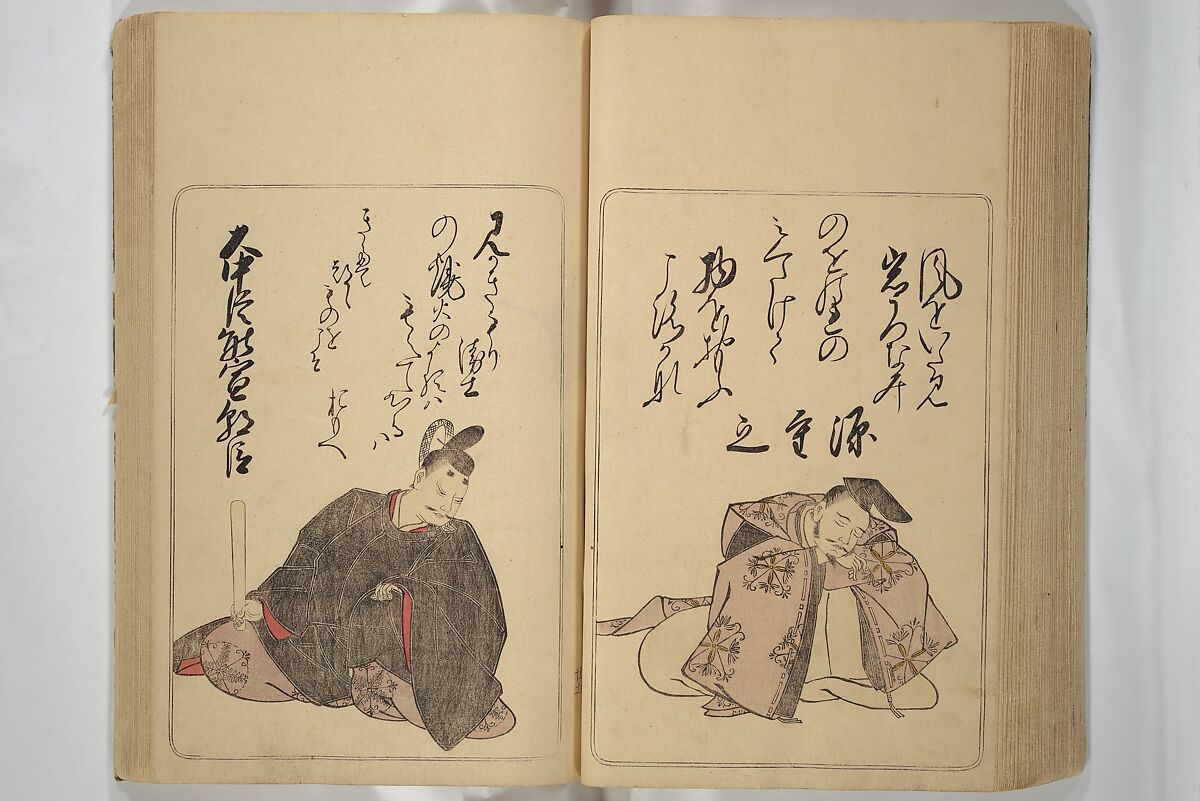 風をいたみ
岩うつなみ
のをのれの
みくたけて
物をおもふ
ころかな
源重之
みかきもり
衛士
の焼火のよるハ
もえてひるハ
きえつゝ
ものをこそ
おもへ
大中臣能宣朝臣